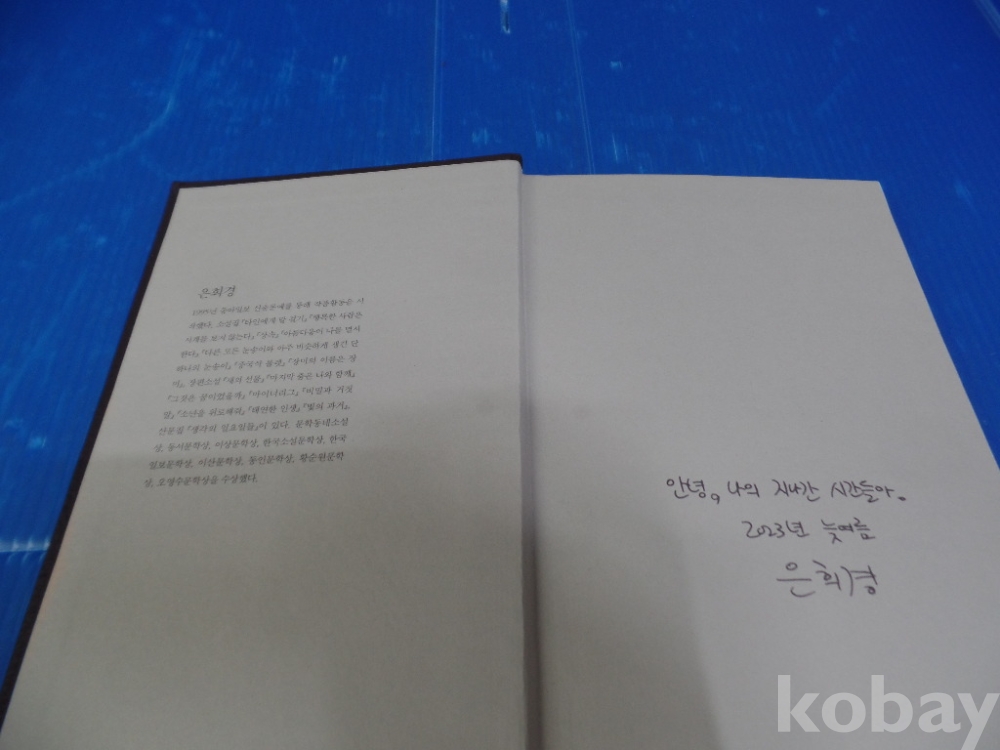 은희경
1995년 동아일보 신춘문예를 통해 작품활동을 시
작했다. 소설집 『타인에게 말 걸기』 『행복한 사람은
시계를 보지 않는다』 『상속』 『아름다움이 나를 멸시
한다』 『다른 모든 눈송이와 아주 비슷하게 생긴 단
하나의 눈송이』 『중국식 룰렛』 『장미의 이름은 장
미』, 장편소설 『새의 선물』 『마지막 춤은 나와 함께』
『그것은 꿈이었을까』 『마이너리그』 『비밀과 거짓
말』 『소년을 위로해줘』 『태연한 인생』 『빛의 과거』,
산문집 『생각의 일요일들』이 있다. 문학동네소설
상, 동서문학상, 이상문학상, 한국소설문학상, 한국
일보문학상, 이산문학상, 동인문학상, 황순원문학
상, 오영수문학상을 수상했다.
안녕, 나의 지나간 시간들아.
2023년 늦여름
은희경
kobay